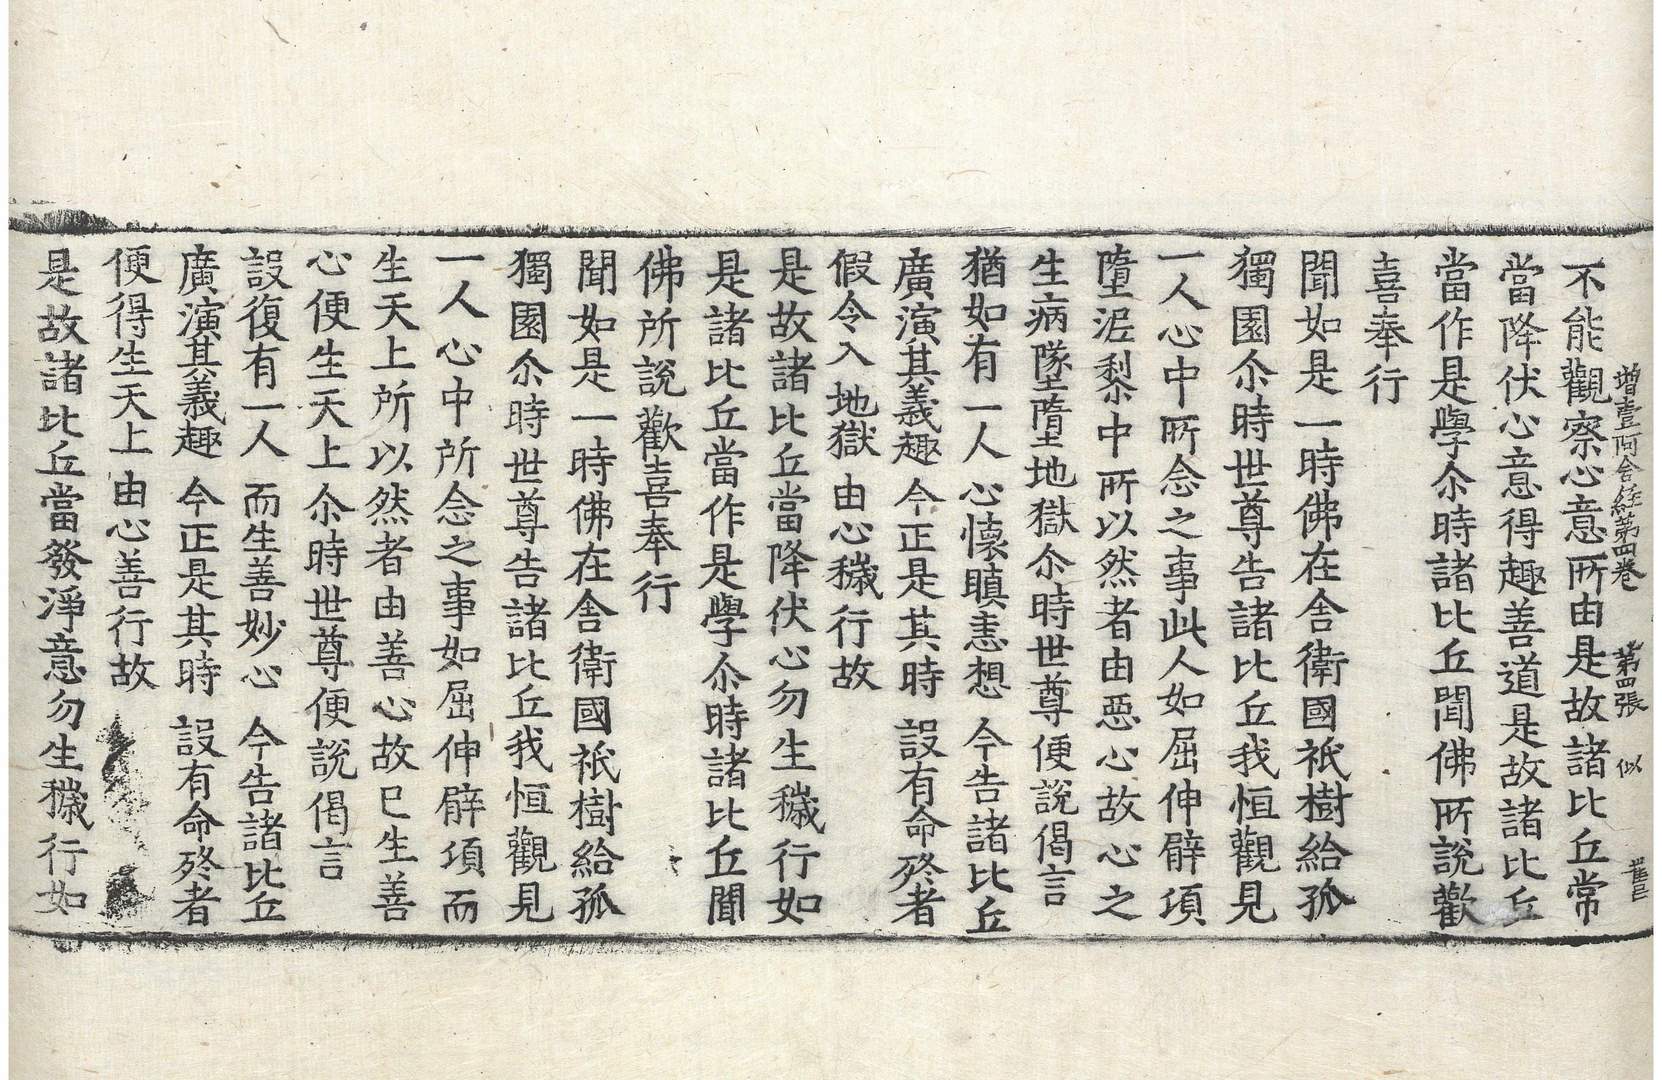 增壹阿含經第四卷 第四張 似
不能觀察心意所由是故諸比丘常
當降伏心意得趣善道是故諸比丘
當作是學尒時諸比丘聞佛所說歡
喜奉行
聞如是一時佛在舍衛國祇樹給孤
獨園尒時世尊告諸比丘我恒觀見
一人心中所念之事此人如屈伸臂項
墮泥梨中所以然者由惡心故心之
生病墜墮地獄尒時世尊便說偈言
猶如有一人 心懷瞋恚想 今告諸比丘
廣演其義趣 今正是其時 設有命終者
假令入地獄 由心穢行故
是故諸比丘當降伏心勿生穢行如
是諸比丘當作是學尒時諸比丘聞
佛所說歡喜奉行
聞如是一時佛在舍衛國祇樹給孤
獨園尒時世尊告諸比丘我恒觀見
一人心中所念之事如屈伸臂項而
生天上所以然者由善心故已生善
心便生天上尒時世尊便說偈言
設復有一人 而生善妙心 今告諸比丘
廣演其義趣 今正是其時 設有命終者
便得生天上 由心善行故
是故諸比丘當發淨意勿生穢行如